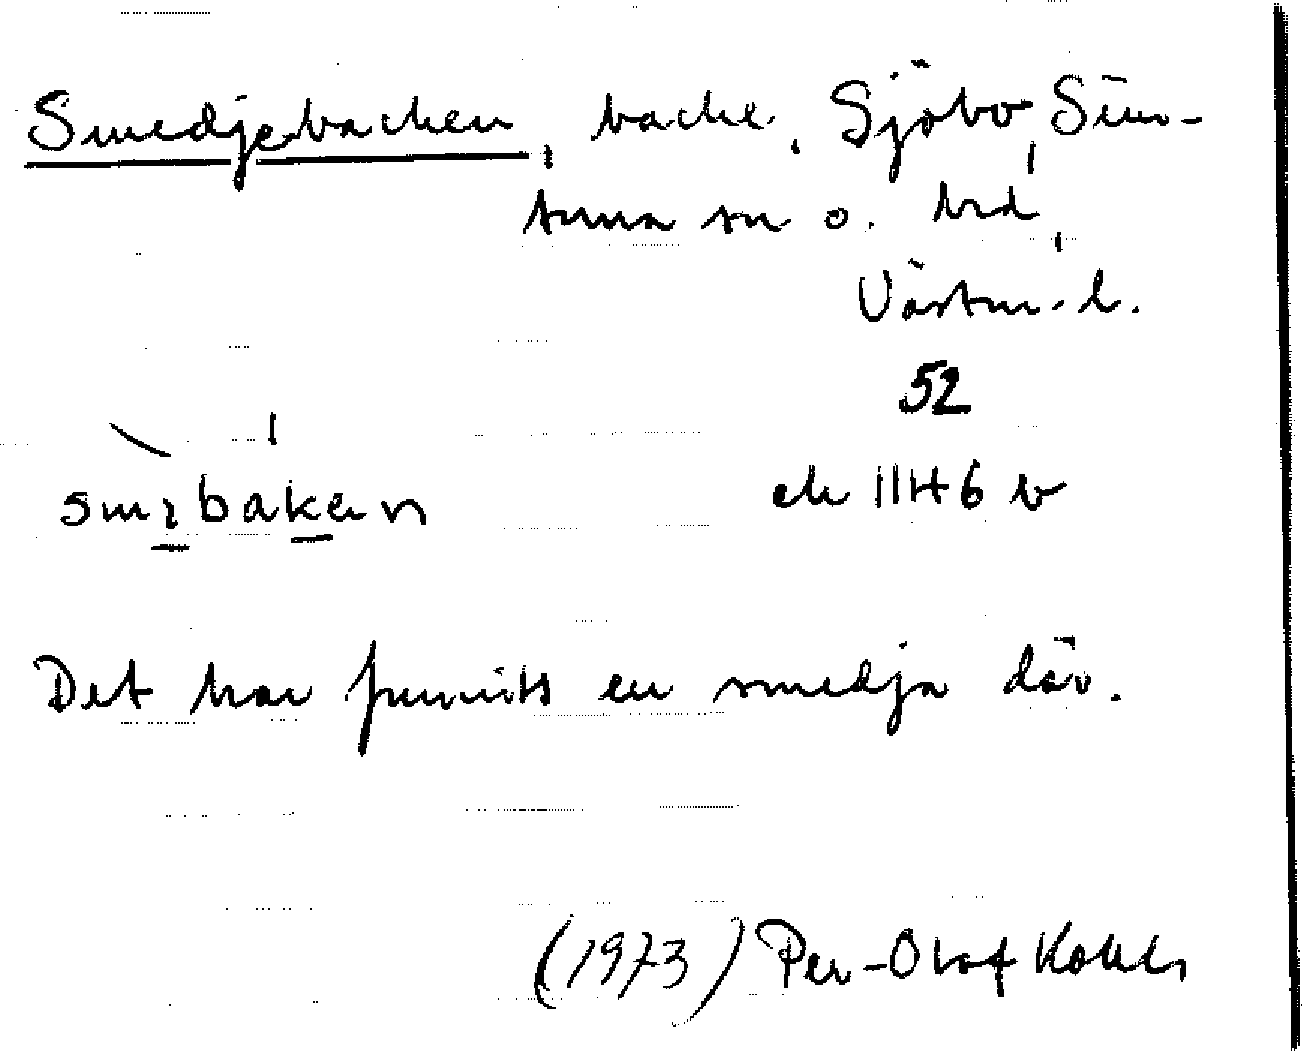 Smedjebacken, backe, Sjöbo, Sim-
tuna sn o. hd,
Västm. l.
52
ek 11H6 b
Det har funnits en smedja där.
(1973) Per-Olof